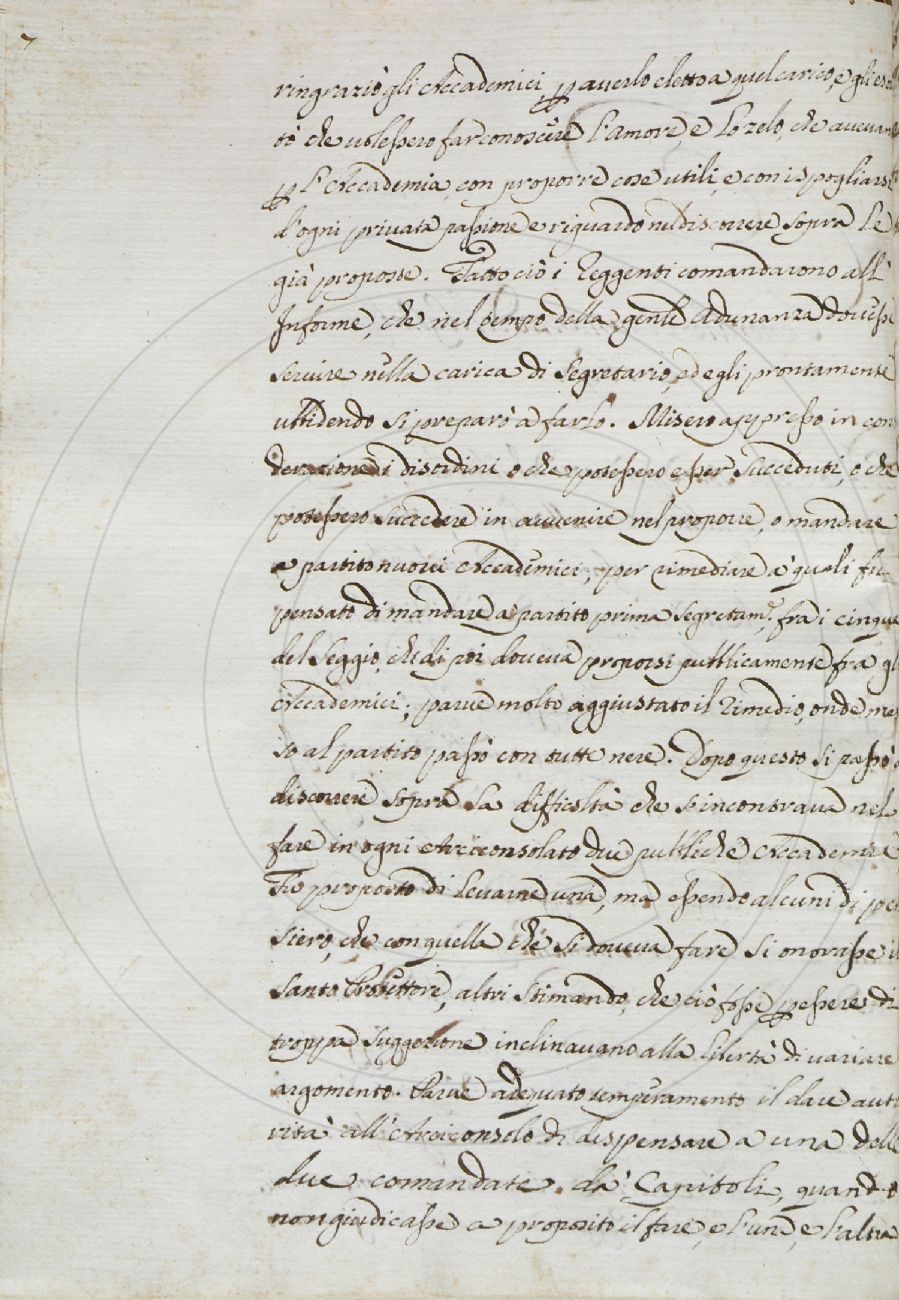 ringraziò gli Accademici p averlo eletto a quel carico, e gli esor
tò che volessero far conoscere l'Amore, e lo zelo, che avevan
p l'Accademia, con proporre cose utili e con ispogliarsi
d'ogni privata passione e riguardo nel discorrere sopra le
già proposte. Fatto ciò i Reggenti comandarono all'
Informe, che nel tempo della genle Adunanza dovesse
servire nella carica di Segretario, ed egli prontamente
ubbidendo si preparò a farlo. Misero appresso in con
derazione i disordini o che potessero esser succeduti, o che
potessero succedere in avvenire nel proporre, o mandare
a partito nuovi Accademici, per rimediare a' quali fu
pensato di mandare a partito prima segretam.e fra i cinque
del Seggio, chi di poi doveva proporsi pubblicamente fra gl
Accademici; parve molto aggiustato il Rimedio, onde mes
so al partito passò con tutte nere. Dopo questo si passò a
discorrere sopra la difficoltà che s'incontrava nel
fare in ogni Arciconsolato due pubbliche Accademie
Fu proposto di levarne una, ma essendo alcuni di pen
siero, che con quella che si doveva fare si onorasse il
Santo Protettore, altri stimando, che ciò fosse p essere di
troppa suggezione inclinavano alla libertà di variare
argomento. Parve adeguato temperamento il dare auto
rità all'Arciconsolo di dispensare a una delle
due comandate da' Capitoli, quando
non giudicasse a proposito il fare, e l'una, e l'altra